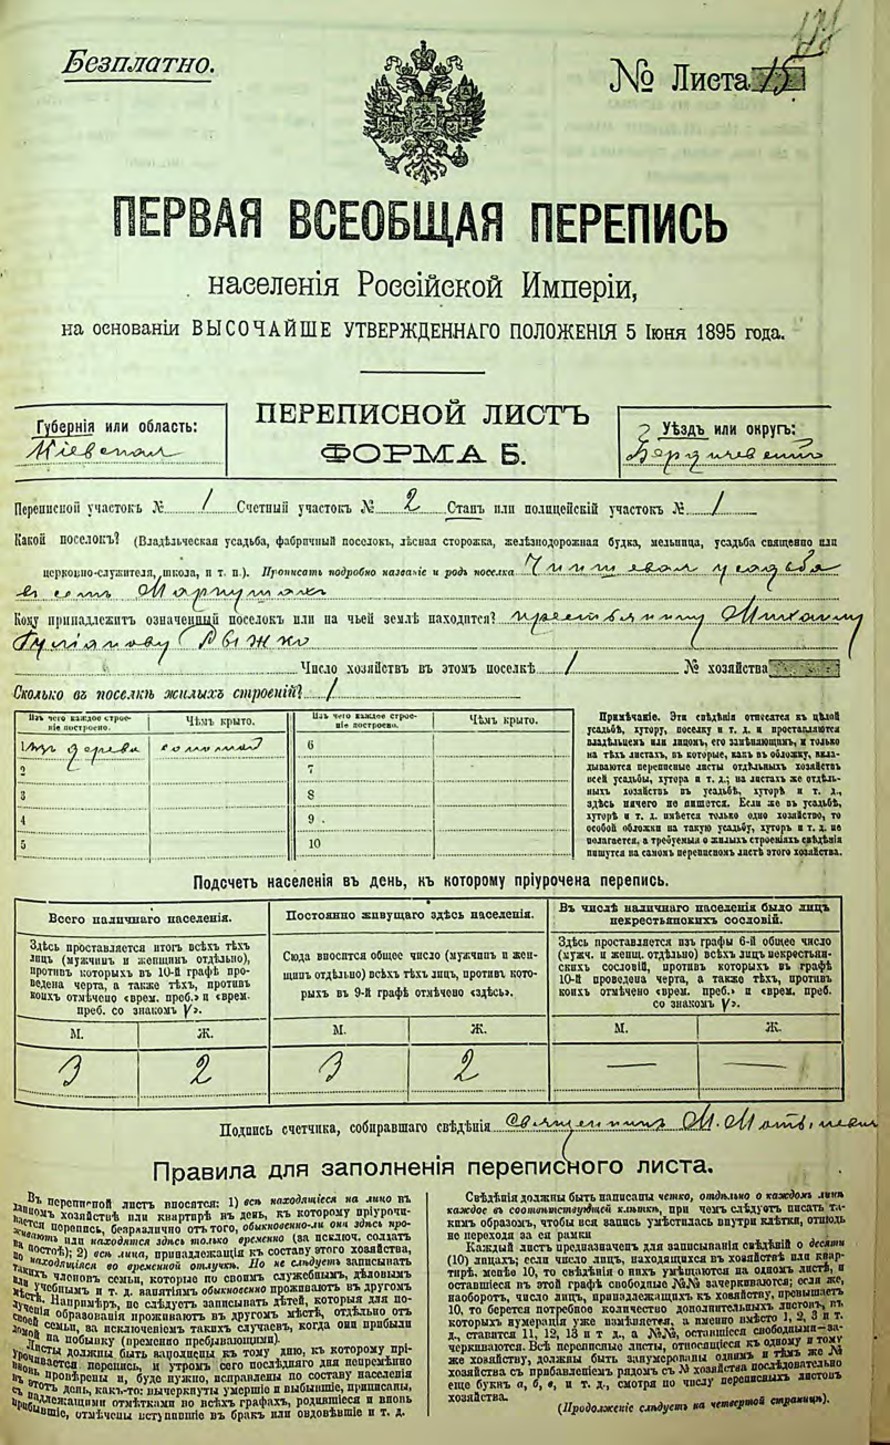 Безплатно.
№ Листа 15
ПЕРВАЯ ВСЕОБЩАЯ ПЕРЕПИСЬ
населенія Россійской Имперіи,
на основаніи ВЫСОЧАЙШЕ УТВЕРЖДЕННАГО ПОЛОЖЕНІЯ 5 Іюня 1895 года.
Губернія или область:
Кіевская
ПЕРЕПИСНОЙ ЛИСТЪ
ФОРМА Б.
Уѣздъ или округъ:
Бердичевскій
Переписной участокъ № 1 Счетный участокъ № 2 Станъ или полицейскій участокъ № 1
Какой поселокъ? (Владѣльческая усадьба, фабричный поселокъ, лѣсная сторожка, желѣзнодорожная будка, мельница, усадьба священно или
церковно-служителя, школа, и т. п.). Прописать подробно названіе и родъ поселка Чиншевая усадьба
въ селѣ
Кому принадлежитъ означенный поселокъ или на чьей землѣ находится? крестьянину Михаилу
Рыжко
Число хозяйствъ въ этомъ поселкѣ 1 № хозяйства
Сколько въ поселкѣ жилыхъ строеній? 1
Изъ чего каждое строеніе построено. Чѣмъ крыто. Изъ чего каждое строеніе построено. Чѣмъ крыто.
1 изъ дерева соломой 6
2 7
3 8
4 9
5 10
Примѣчаніе. Эти свѣдѣнія относятся къ цѣлой
усадьбѣ, хутору, поселку и т. д. и проставляются
владѣльцемъ или лицомъ, его замѣняющимъ, и только
на тѣхъ листахъ, въ которые, какъ въ обложку, вкла-
дываются переписные листы отдѣльныхъ хозяйствъ
всей усадьбы, хутора и т. д.; на листахъ же отдѣль-
ныхъ хозяйствъ въ усадьбѣ, хуторѣ и т. д.,
здѣсь ничего не пишется. Если же въ усадьбѣ,
хуторѣ и т. д. имѣется только одно хозяйство, то
особой обложки на такую усадьбу, хуторъ и т. д. не
полагается, а требуемыя о жилыхъ строеніяхъ свѣдѣнія
пишутся на самомъ переписномъ листѣ этого хозяйства.
Подсчетъ населенія въ день, къ которому пріурочена перепись.
Всего наличнаго населенія.
Здѣсь проставляется итогъ всѣхъ тѣхъ
лицъ (мужчинъ и женщинъ отдѣльно),
противъ которыхъ въ 10-й графѣ про-
ведена черта, а также тѣхъ, противъ
коихъ отмѣчено «врем. преб.» и «врем.
преб. со знакомъ V».
М. Ж.
3 2
Постоянно живущаго здѣсь населенія.
Сюда вносится общее число (мужчинъ и жен-
щинъ отдѣльно) всѣхъ тѣхъ лицъ, противъ кото-
рыхъ въ 9-й графѣ отмѣчено «здѣсь».
М. Ж.
3 2
Въ числѣ наличнаго населенія было лицъ
некрестьянскихъ сословій.
Здѣсь проставляется изъ графы 6-й общее число
(мужч. и женщ. отдѣльно) всѣхъ лицъ некрестьян-
скихъ сословій, противъ которыхъ въ графѣ
10-й проведена черта, а также тѣхъ, противъ
коихъ отмѣчено «врем. преб.» и «врем. преб.
со знакомъ V».
М. Ж.
— —
Подпись счетчика, собиравшаго свѣдѣнія Священникъ
Правила для заполненія переписного листа.
Въ переписной листъ вносятся: 1) всѣ находящіеся на лицо въ
данномъ хозяйствѣ или квартирѣ въ день, къ которому пріурочи-
вается перепись, безразлично отъ того, обыкновенно-ли они здѣсь про-
живаютъ или находятся здѣсь только временно (за исключ. солдатъ
на постоѣ); 2) всѣ лица, принадлежащія къ составу этого хозяйства,
но находящіяся во временной отлучкѣ. Но не слѣдуетъ записывать
такихъ членовъ семьи, которые по своимъ служебнымъ, дѣловымъ
или учебнымъ и т. д. занятіямъ обыкновенно проживаютъ въ другомъ
мѣстѣ. Напримѣръ, не слѣдуетъ записывать дѣтей, которыя для по-
лученія образованія проживаютъ въ другомъ мѣстѣ, отдѣльно отъ
своей семьи, за исключеніемъ такихъ случаевъ, когда они прибыли
домой на побывку (временно пребывающими).
Листы должны быть заполнены къ тому дню, къ которому прі-
урочивается перепись, и утромъ сего послѣдняго дня непремѣнно
вновь провѣрены и, буде нужно, исправлены по составу населенія
въ этотъ день, какъ-то: вычеркнуты умершіе и выбывшіе, приписаны,
съ надлежащими отмѣтками во всѣхъ графахъ, родившіеся и вновь
прибывшіе, отмѣчены вступившіе въ бракъ или овдовѣвшіе и т. д.
Свѣдѣнія должны быть написаны четко, отдѣльно о каждомъ лицѣ
каждое въ соотвѣтствующей клѣткѣ, при чемъ слѣдуетъ писать та-
кимъ образомъ, чтобы вся запись умѣстилась внутри клѣтки, отнюдь
не переходя за ея рамки
Каждый листъ предназначенъ для записыванія свѣдѣній о десяти
(10) лицахъ; если число лицъ, находящихся въ хозяйствѣ или квар-
тирѣ, менѣе 10, то свѣдѣнія о нихъ умѣщаются на одномъ листѣ, а
оставшіеся въ этой графѣ свободные №№ зачеркиваются; если же,
наоборотъ, число лицъ, принадлежащихъ къ хозяйству, превышаетъ
10, то берется потребное количество дополнительныхъ листовъ, въ
которыхъ нумерація уже измѣняется, а именно вмѣсто 1, 2, 3 и т.
д., ставится 11, 12, 13 и т д., а №№, оставшіеся свободными—за-
черкиваются. Всѣ переписные листы, относящіеся къ одному и тому
же хозяйству, должны быть занумерованы однимъ и тѣмъ же №
хозяйства съ прибавленіемъ рядомъ съ № хозяйства послѣдовательно
еще буквъ а, б, в, и т. д., смотря по числу переписныхъ листовъ
хозяйства.
(Продолженіе слѣдуетъ на четвертой страницѣ).